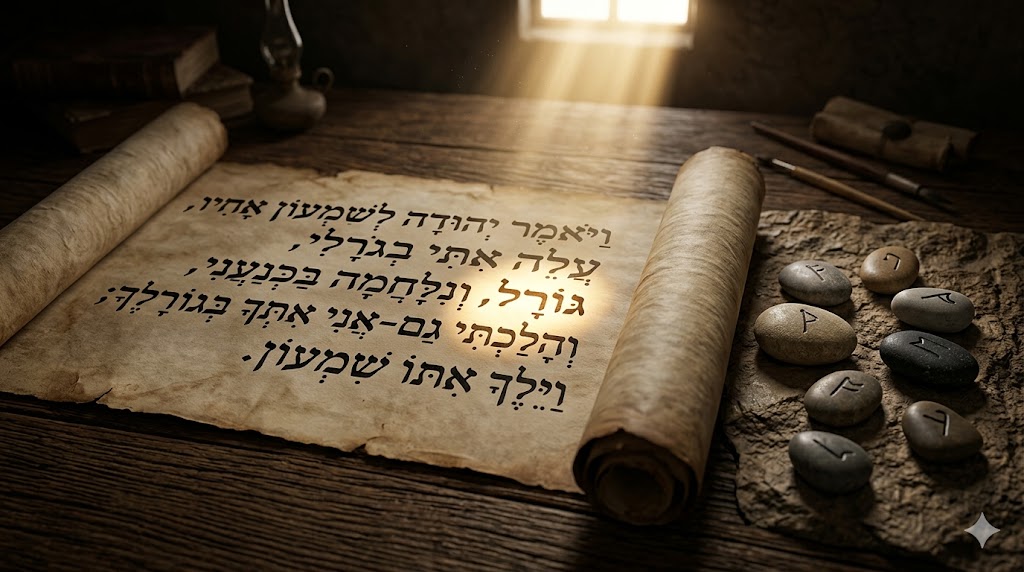 וַיֹּאמֶר יְהוּדָה לְשִׁמְעוֹן אָחִיו,
עֲלֵה אִתִּי בְגֹרָלִי,
גּוֹרָל, וְנִלָּחֲמָה בַּכְּנַעֲנִי,
וְהָלַכְתִּי גַם-אֲנִי אִתְּךָ בְּגוֹרָלֶךָ;
וַיֵּלֶךְ אִתּוֹ שִׁמְעוֹן.